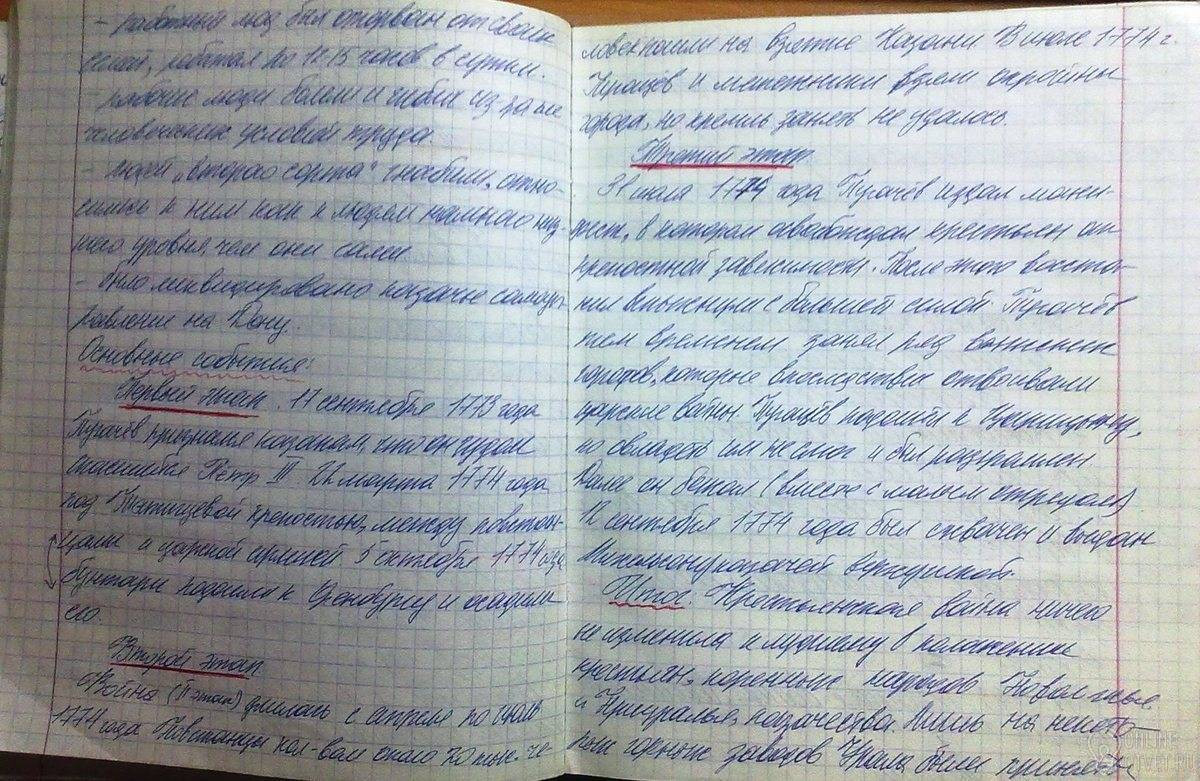 - работные люд был оторван от своих
семей, работал по 12-15 часов в сутки.
- рабочие люди болели и гибли из-за не
человеческих условий труда
- людей „второго сорта" гнобили, отно-
сились к ним как к людям намного низ-
шего уровня, чем они сами
- было ликвидировано казачье самоуп-
равление на Дону.
Основные события:
Первый этап. 17 сентября 1773 года
Пугачёв казакам, что он чудом
спасшийся Пётр III. 22 марта 1774 года
под Татищевой крепостью, между повстан-
цами и царской армией 5 октября 1774 года
бунтари подошли к Оренбургу и осадили
его.
Второй этап
Война (II этап) длилась с апреля по июль
1774 года Повстанцы кол-вом около 20 тыс. че-
ловек пошли на взятие Казани В июле 1774 г.
Пугачёв и мятежники взяли окраины
города, но кремль занять не удалось.
Третий этап
31 июля 1774 года Пугачёв издал мани-
фест, в котором освобождал крестьян от
крепостной зависимости. После этого восста-
ния вспыхнули с большей силой Пугачёв
тем временем занял ряд
городов, которые впоследствии отвоевали
царские войны. Пугачёв подошёл к Царицыну,
но овладеть им не смог и был разгромлен
Далее он бежал (вместе с малым отрядом)
12 сентября 1774 года был схвачен и выдан
казачей верхушкой.
Итог. Крестьянская война ничего
не изменила к лучшему в положении
крестьян, коренных народов Поволжье
и Приуралья, казачества. Лишь на некото-
рых горных заводов Урала были приняты
ONLINE
OTVET.RU